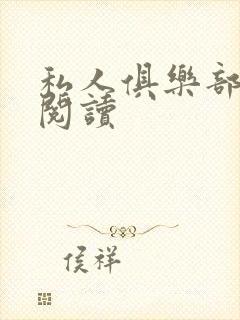 私人俱樂部
閱讀
侯祥